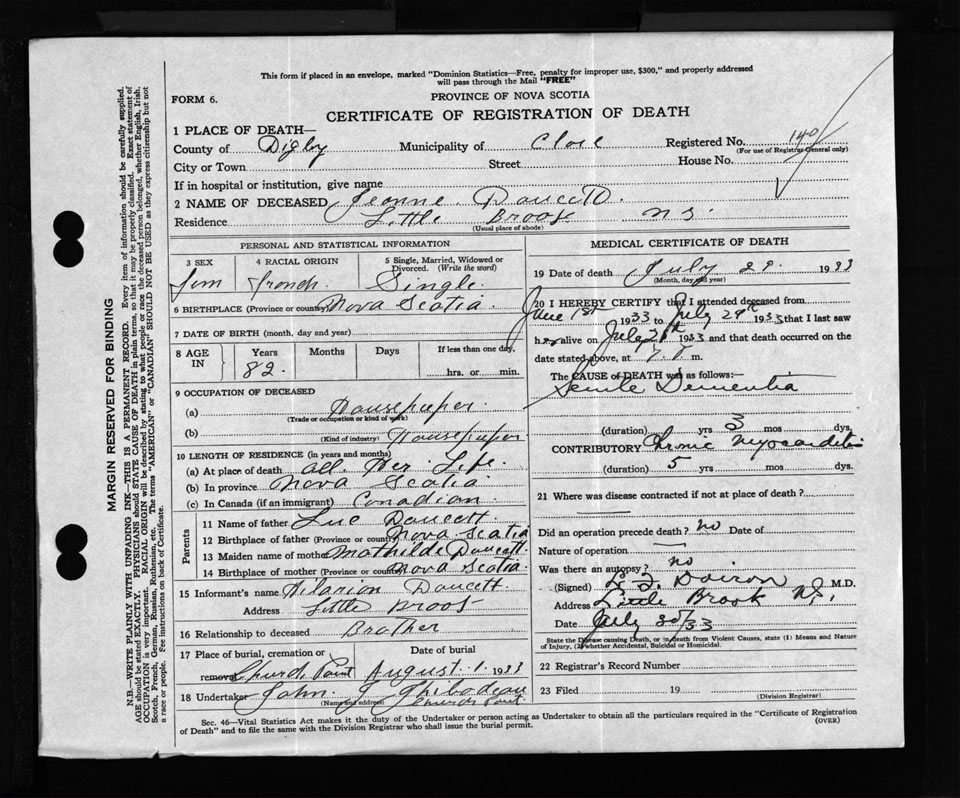 This form if placed in an envelope, marked "Dominion Statistics—Free, penalty for improper use, $300," and properly addressed
will pass through the Mail "FREE"
FORM 6.
PROVINCE OF NOVA SCOTIA
CERTIFICATE OF REGISTRATION OF DEATH
1 PLACE OF DEATH—
County of Digby Municipality of Clare Registered No. 140
(For use of Registrar General only)
City or Town Street House No.
If in hospital or institution, give name
2 NAME OF DECEASED Jeanne Doucett
Residence Little Brook N S.
(Usual place of abode)
PERSONAL AND STATISTICAL INFORMATION
3 SEX 4 RACIAL ORIGIN 5 Single, Married, Widowed or
Divorced. (Write the word)
Fem French Single
6 BIRTHPLACE (Province or country) Nova Scotia
7 DATE OF BIRTH (month, day and year)
8 AGE IN Years Months Days If less than one day,
82. hrs. or min.
9 OCCUPATION OF DECEASED
(a) Housekeeper
(Trade or occupation or kind of work)
(b) Housekeeper
(Kind of industry)
10 LENGTH OF RESIDENCE (in years and months)
(a) At place of death all Her Life.
(b) In province Nova Scotia
(c) In Canada (if an immigrant) Canadian
Parents
11 Name of father Luc Doucett
12 Birthplace of father (Province or country) Nova Scotia
13 Maiden name of mother Mathilde Doucett
14 Birthplace of mother (Province or country) Nova Scotia
15 Informant's name Hilarion Doucett
Address Little Brook
16 Relationship to deceased Brother
17 Place of burial, cremation or Date of burial
removal Church Point August 1. 1933
18 Undertaker John J Thibodeau
(Name and address) Church Point
MEDICAL CERTIFICATE OF DEATH
19 Date of death July 29. 1933
(Month, day and year)
20 I HEREBY CERTIFY that I attended deceased from
June 1st 1933 to July 29th 1933 that I last saw
her alive on July 28th 1933 and that death occurred on the
date stated above, at m.
The CAUSE OF DEATH was as follows:—
Senile Dementia
(duration) yrs 3 mos dys.
CONTRIBUTORY Chronic Myocarditis
(duration) 5 yrs mos dys.
21 Where was disease contracted if not at place of death?
Did an operation precede death? no Date of
Nature of operation
Was there an autopsy? no
(Signed) Doiron M.D.
Address Little Brook N.S.
Date July 30/33
State the Disease causing Death, or in death from Violent Causes, state (1) Means and Nature
of Injury, (2) whether Accidental, Suicidal or Homicidal.
22 Registrar's Record Number
23 Filed 19
(Division Registrar)
Sec. 46—Vital Statistics Act makes it the duty of the Undertaker or person acting as Undertaker to obtain all the particulars required in the "Certificate of Registration
of Death" and to file the same with the Division Registrar who shall issue the burial permit.
(OVER)
MARGIN RESERVED FOR BINDING
N.B.—WRITE PLAINLY WITH UNFADING INK—THIS IS A PERMANENT RECORD. Every item of information should be carefully supplied.
AGE should be stated EXACTLY. PHYSICIANS should STATE CAUSE OF DEATH in plain terms, so that it may be properly classified. Exact statement of
OCCUPATION is very important. RACIAL ORIGIN will be described by stating to what people or race the deceased person belonged, whether English, Irish,
Scotch, French, German, Russian, Ruthenian, etc. The terms "AMERICAN" or "CANADIAN" SHOULD NOT BE USED as they express citizenship but not
a race or people. Fee instructions on back of Certificate.